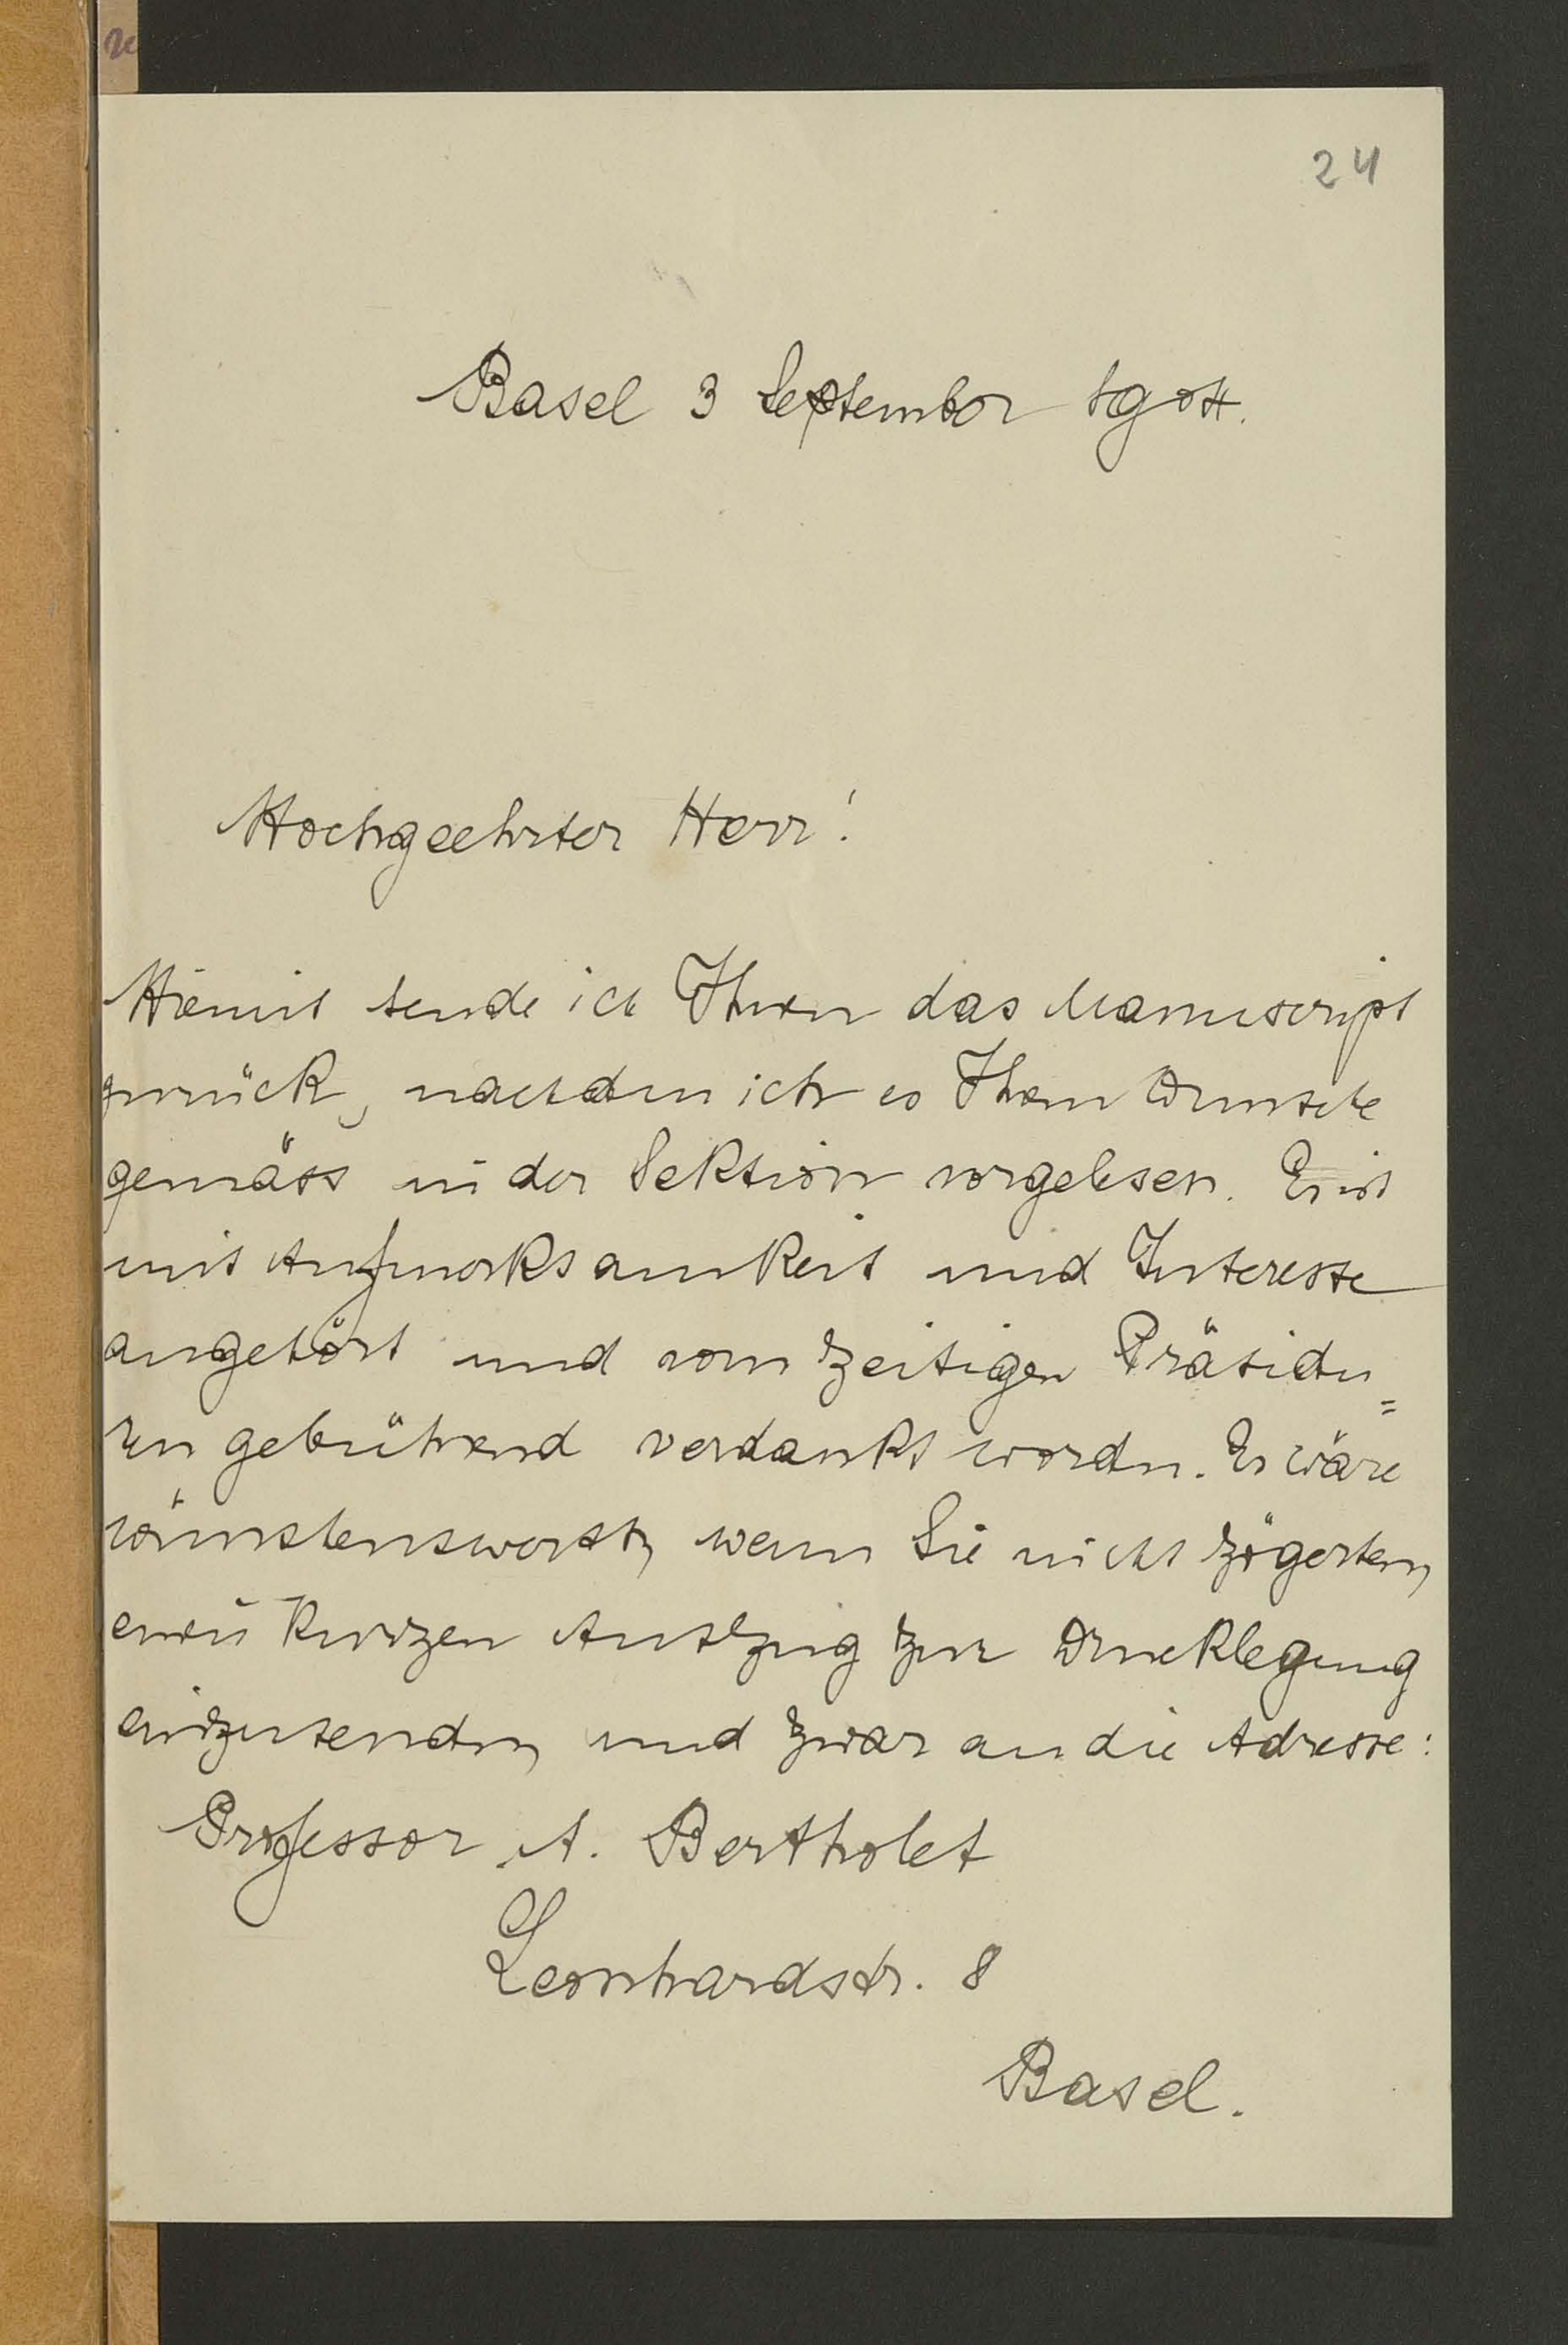 24
Basel 3 September 1904.
Hochgeehrter Herr!
Hiemit sende ich Ihnen das Manuscript
zurück, nachdem ich es Ihrem Wunsche
gemäss in der Sektion vorgelesen. Es ist
mit Aufmerksamkeit und Interesse
angehört und vom zeitigen Präsiden=
ten gebührend verdankt worden. Es wäre
wünschenswerth, wenn Sie nicht zögerten,
einen kurzen Auszug zur Drucklegung
einzusenden, und zwar an die Adresse:
Professor A. Bertholet
Leonhardstr. 8
Basel.